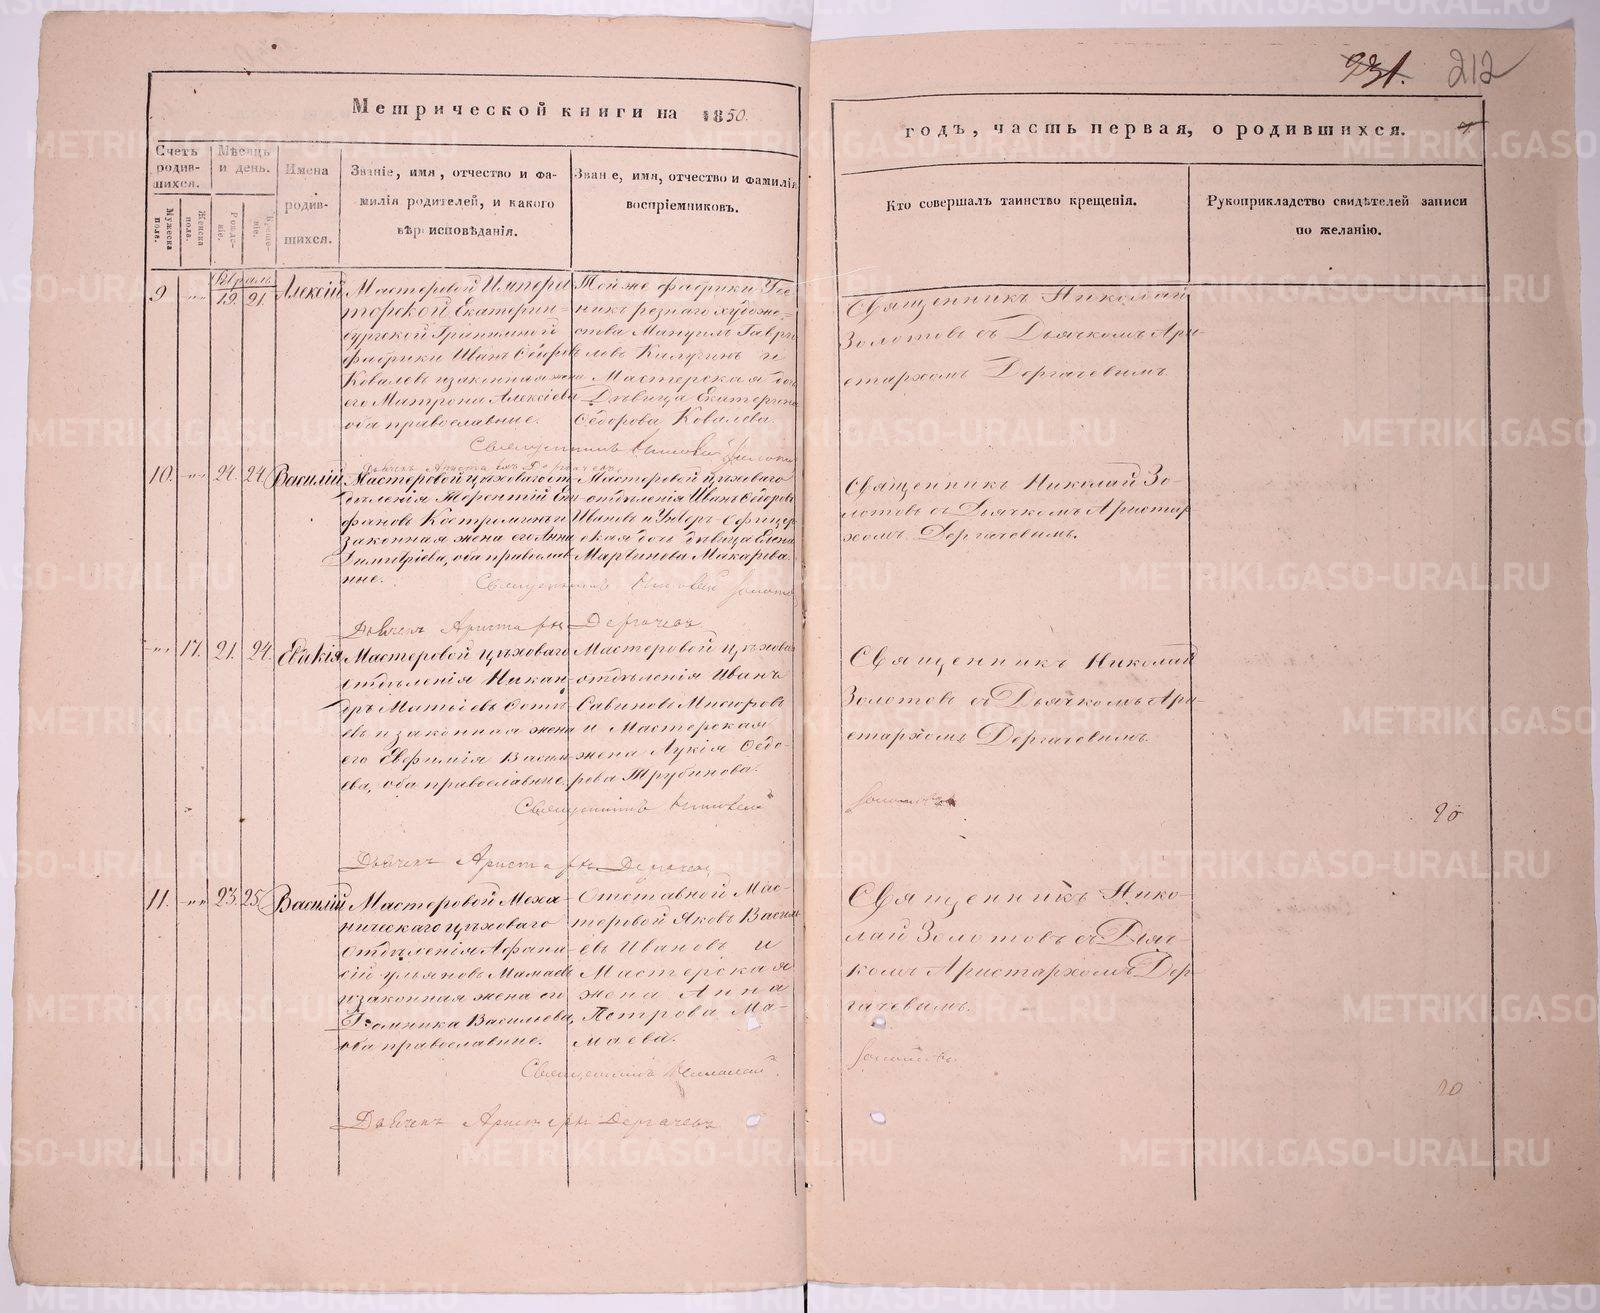 231. 212
Метрической книги на 1850.
годъ, часть первая, о родившихся.
Счетъ родившихся.
Мужеска пола.
Женска пола.
Мѣсяцъ и день.
Рожденіе.
Крещеніе.
Имена родившихся.
Званіе, имя, отчество и фамилія родителей, и какого вѣроисповѣданія.
Званіе, имя, отчество и фамилія воспріемниковъ.
Кто совершалъ таинство крещенія.
Рукоприкладство свидѣтелей записи по желанію.
9
19. 21.
Алексій
Мастеровой Императорской
Екатеринбургской Гранильной
фабрики Иванъ Ѳедоровъ
Ковалевъ и законная жена
его Матрона Алексіева
оба православные.
Той же фабрики
Мануилъ Гавриловъ
Калугинъ и
Мастерская дочь
Дѣвица Екатерина
Ѳедорова Ковалева.
Священникъ Николай
Золотовъ съ Дьячкомъ Аристархомъ
Дергачевымъ.
Священникъ Николай Золотовъ
Дьячекъ Аристархъ Дергачевъ
10.
24. 24.
Василій
Мастеровой цѣховаго отдѣленія
Терентій
Костроминъ и
законная жена его Анна
Димитріева, оба православные.
Мастеровой цѣховаго
отдѣленія Иванъ Ѳедоровъ
Ивановъ и Унтеръ-Офицерская
дочь дѣвица Елена
Мартинова Макарова.
Священникъ Николай Золотовъ
съ Дьячкомъ Аристархомъ
Дергачевымъ.
Священникъ Николай Золотовъ
Дьячекъ Аристархъ Дергачевъ
17.
21. 24.
Евдокія
Мастеровой цѣховаго
отдѣленія Никандръ
Матѳіевъ
и законная жена
его Евфимія Васильева,
оба православные.
Мастеровой цѣховаго
отдѣленія Иванъ
Савиновъ
и Мастерская
жена Лукія Ѳедорова
Трубинова.
Священникъ Николай
Золотовъ съ Дьячкомъ Аристархомъ
Дергачевымъ.
Священникъ Николай
Золотовъ
Дьячекъ Аристархъ Дергачевъ
11.
23. 25.
Василій
Мастеровой Механическаго
цѣховаго
отдѣленія Афанасій
Ульяновъ Мамаевъ
и законная жена его
Домника Васильева,
оба православные.
Отставной Мастеровой
Яковъ Васильевъ
Ивановъ и
Мастерская
жена Анна
Петрова
Священникъ Николай
Золотовъ съ Дьячкомъ
Аристархомъ Дергачевымъ.
Священникъ Николай
Золотовъ.
Дьячекъ Аристархъ Дергачевъ
METRIKI.GASO-URAL.RU